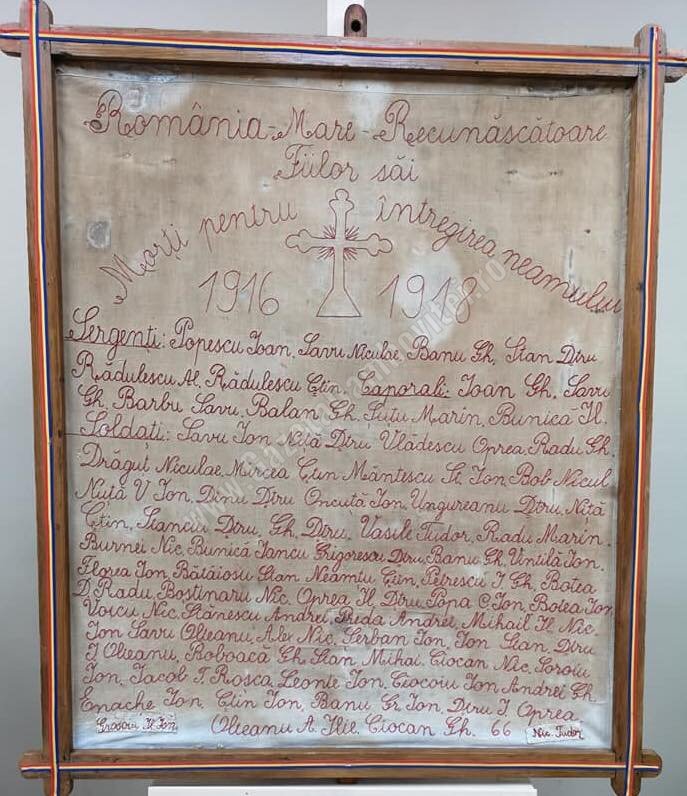 România-Mare-Recunăscătoare
Fiilor săi
Morți pentru întregirea neamului
1916 1918
Sergenți: Popescu Ioan, Savu Niculae, Banu Gh, Stan Dtru
Radulescu Al, Rădulescu Ctin, Caporali: Ioan Gh, Savu
Gh, Barbu Savu, Balan Gh, Suțu Marin, Bunică Il.
Soldați: Savu Ion Niță Dtru Vlădescu Oprea, Radu Gh,
Drăguț Niculae, Mircea Ctin Măntescu St. Ion, Bob Nicul
Nuță V Ion, Dinu Dtru Oncuță Ion, Ungureanu Dtru, Niță
Ctin, Stanciu Dtru, Gh, Dtru, Vasile Tudor, Radu Marin
Burnei Nic, Bunică Iancu Grigorescu Dtru, Banu Gh, Vintilă Ion.
Florea Ion, Bătăiosu Stan Neamtu Ctin, Petrescu I Gh, Botea
D, Radu, Bostinaru Nic, Oprea Il, Dtru, Popa C, Ion, Botea Ion
Voicu Nic, Stănescu Andrei, Preda Andrei, Mihail Il Nic.
Ion Savu Olteanu, Alex Nic, Serban Ion, Ion Stan, Dtru
I Olteanu, Boboacă Gh, Stan Mihai, Ciocan Nic, Soroiu
Ion, Iacob T. Rosca, Leonte Ion, Ciocoiu Ion, Andrei Gh
Enache Ion, Ctin Ion, Banu Gr Ion, Dtru I Oprea
Olteanu A. Ilie, Ciocan Gh. 66
Grosoiu Il Ion
Nic Tudor